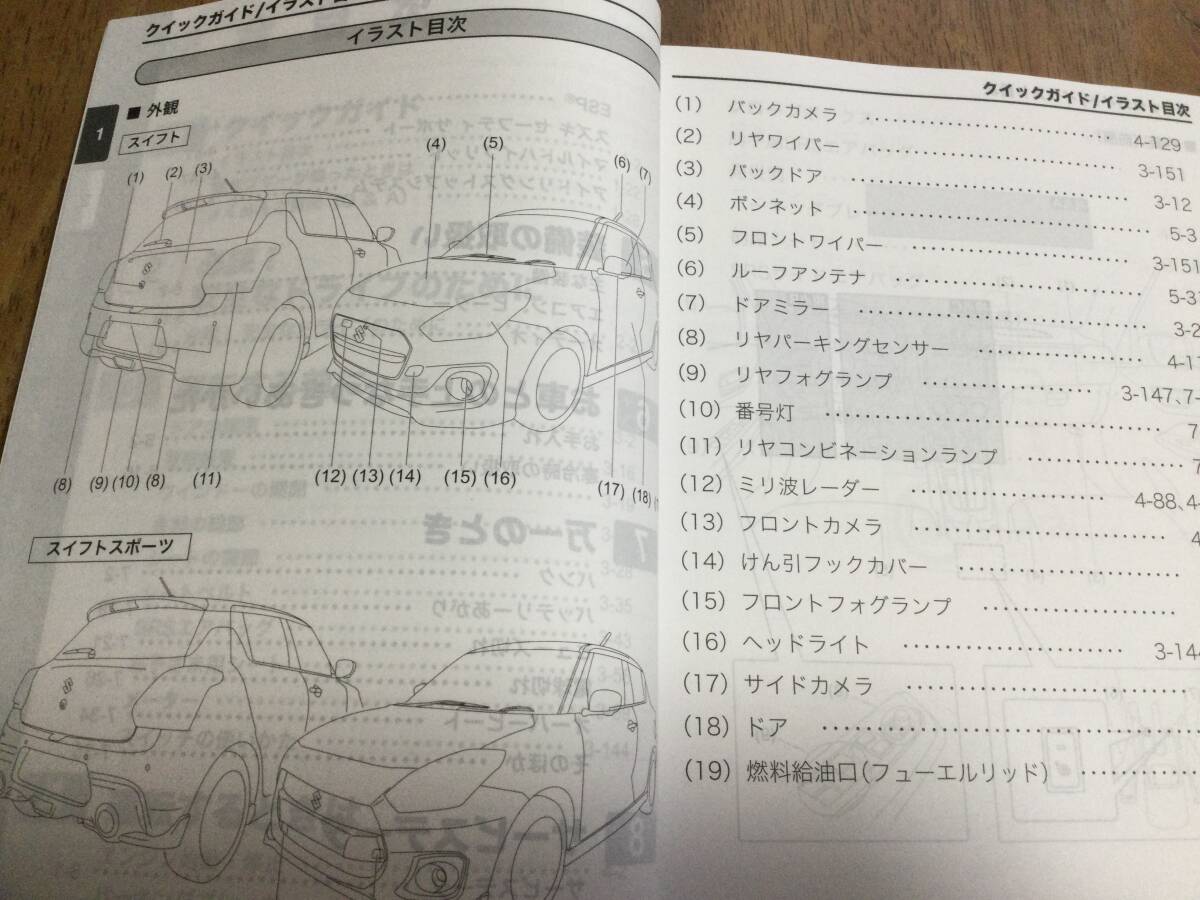 クイックガイド/イラスト目
イラスト目次
1
■ 外観
スイフト
(1) (2) (3) (4) (5) (6) (7)
(8) (9) (10) (8) (11) (12) (13) (14) (15) (16) (17) (18)
スイフトスポーツ
クイックガイド/イラスト目次
(1) バックカメラ 4-129
(2) リヤワイパー 3-151
(3) バックドア 3-12
(4) ボンネット 5-3
(5) フロントワイパー 3-151
(6) ルーフアンテナ 5-31
(7) ドアミラー 3-2
(8) リヤパーキングセンサー 4-1
(9) リヤフォグランプ 3-147、7-
(10) 番号灯 7
(11) リヤコンビネーションランプ 7
(12) ミリ波レーダー 4-88、4-
(13) フロントカメラ 4
(14) けん引フックカバー
(15) フロントフォグランプ
(16) ヘッドライト 3-144
(17) サイドカメラ
(18) ドア
(19) 燃料給油口(フューエルリッド)